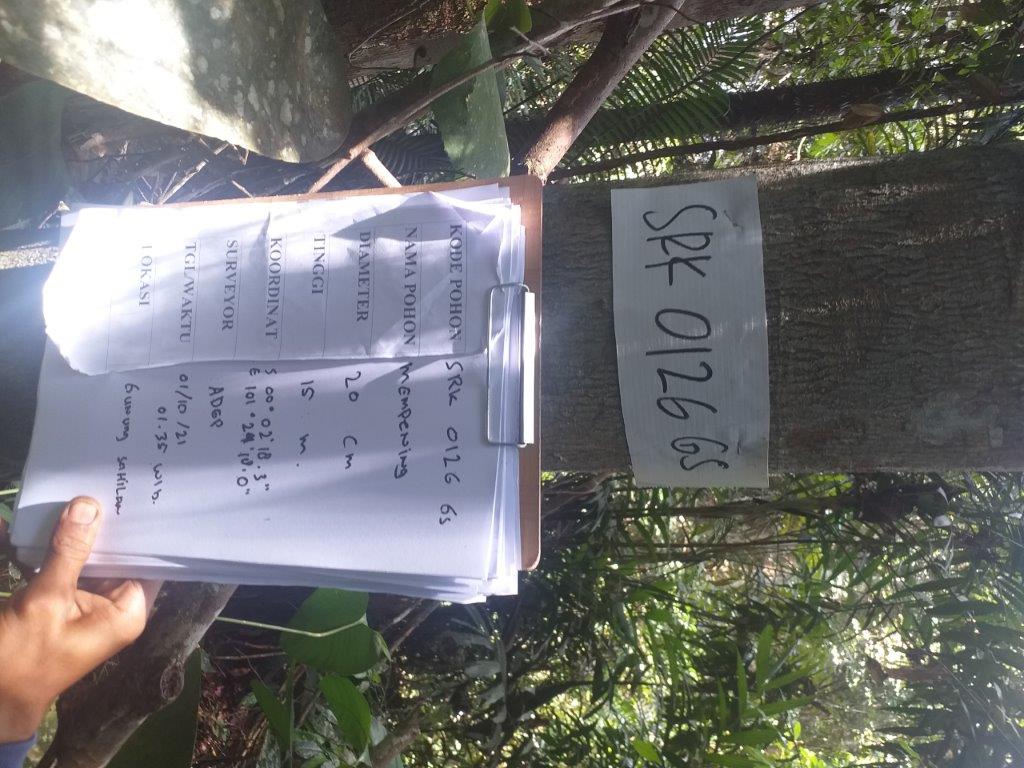 SRK 0126 GS
KODE POHON SRK 0126 GS
NAMA POHON MEMPENING
DIAMETER 20 cm
TINGGI 15 m.
KOORDINAT S 00° 02' 18.3"
E 101° 24' 18.0"
SURVEYOR ADEP
TGL/WAKTU 01/10/21
01.35 WIB.
LOKASI GUNUNG SAHILAN